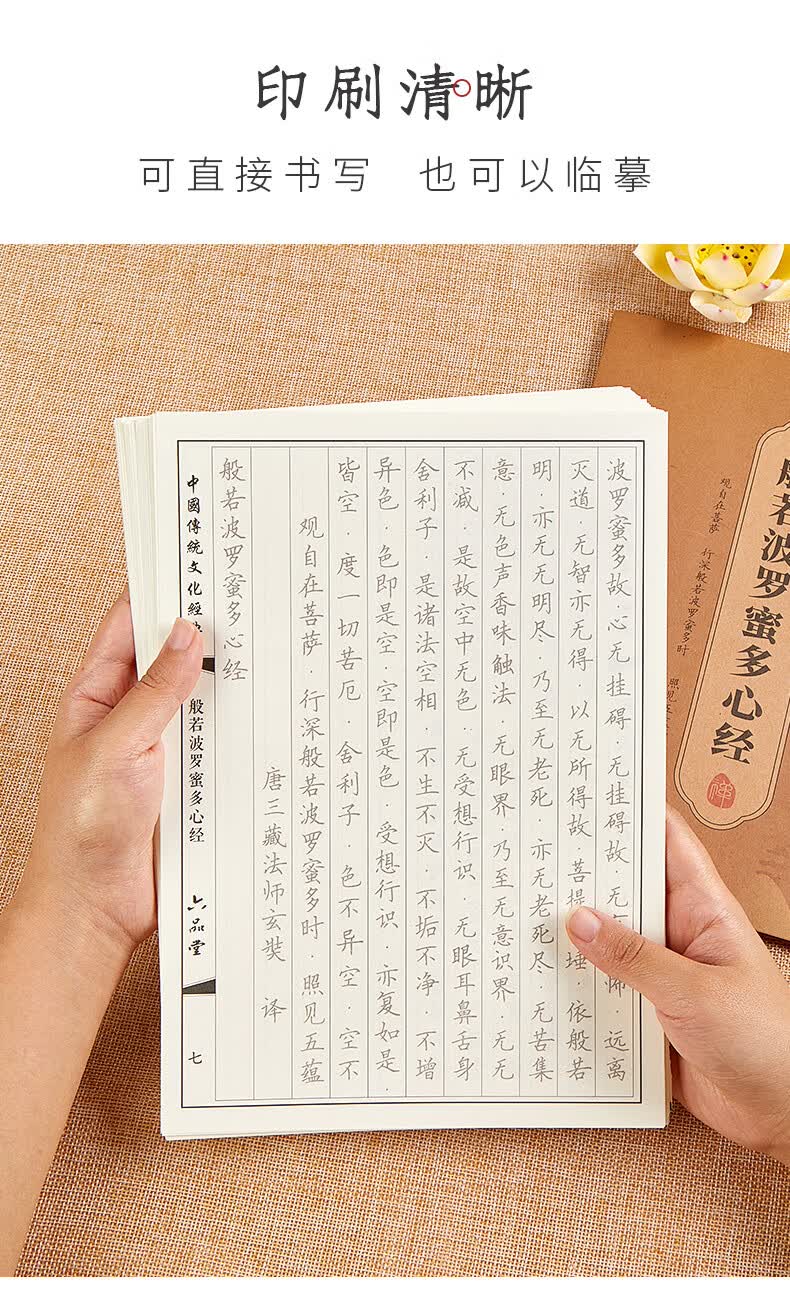 印刷清晰
可直接书写 也可以临摹
中國傳統文化經
般若波罗蜜多心经
六品堂
七
般若波罗蜜多心经
唐三藏法师玄奘 译
观自在菩萨·行深般若波罗蜜多时·照见五蕴
皆空·度一切苦厄·舍利子·色不异空·空不
异色·色即是空·空即是色·受想行识·亦复如是·
舍利子·是诸法空相·不生不灭·不垢不净·不增
不减·是故空中无色·无受想行识·无眼耳鼻舌身
意·无色声香味触法·无眼界·乃至无意识界·无无
明·亦无无明尽·乃至无老死·亦无老死尽·无苦集
灭道·无智亦无得·以无所得故·菩提埵·依般若
波罗蜜多故·心无挂碍·无挂碍故·无怖·远离
观自在菩萨
行深般若波罗蜜多时
照见五
般若波罗蜜多心经
禅